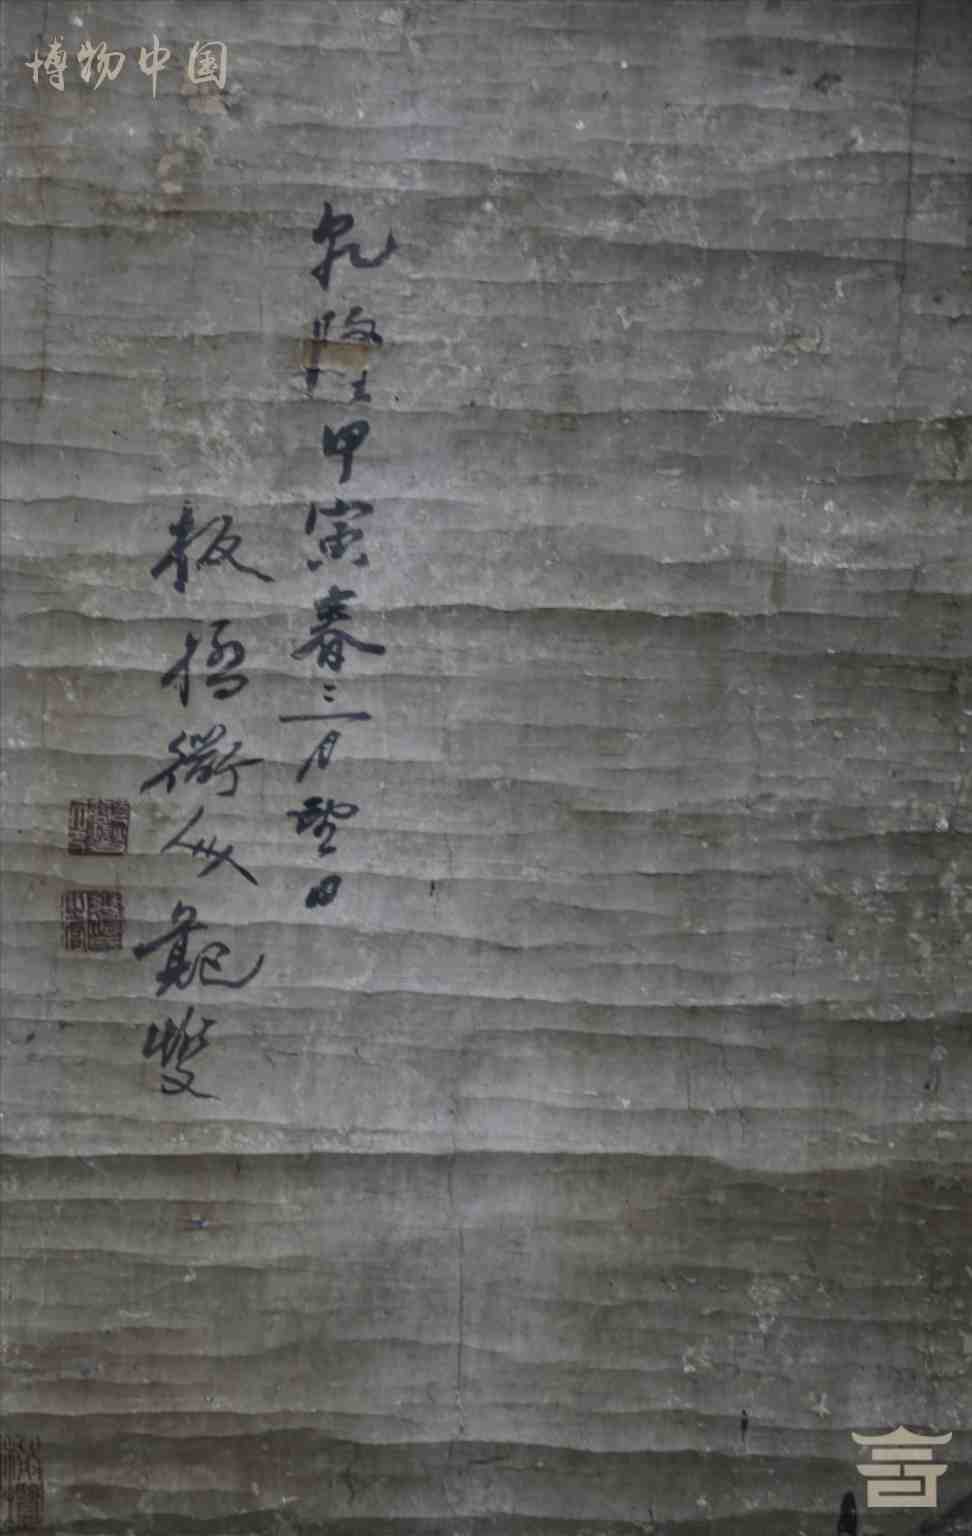 博物中国
乾隆甲寅春三月望日
板橋衜人鄭燮